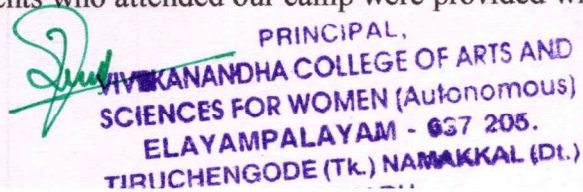 ents who attended our camp were provided w
PRINCIPAL,
VIVEKANANDHA COLLEGE OF ARTS AND
SCIENCES FOR WOMEN (Autonomous)
ELAYAMPALAYAM - 637 205.
TIRUCHENGODE (Tk.) NAMAKKAL (Dt.)